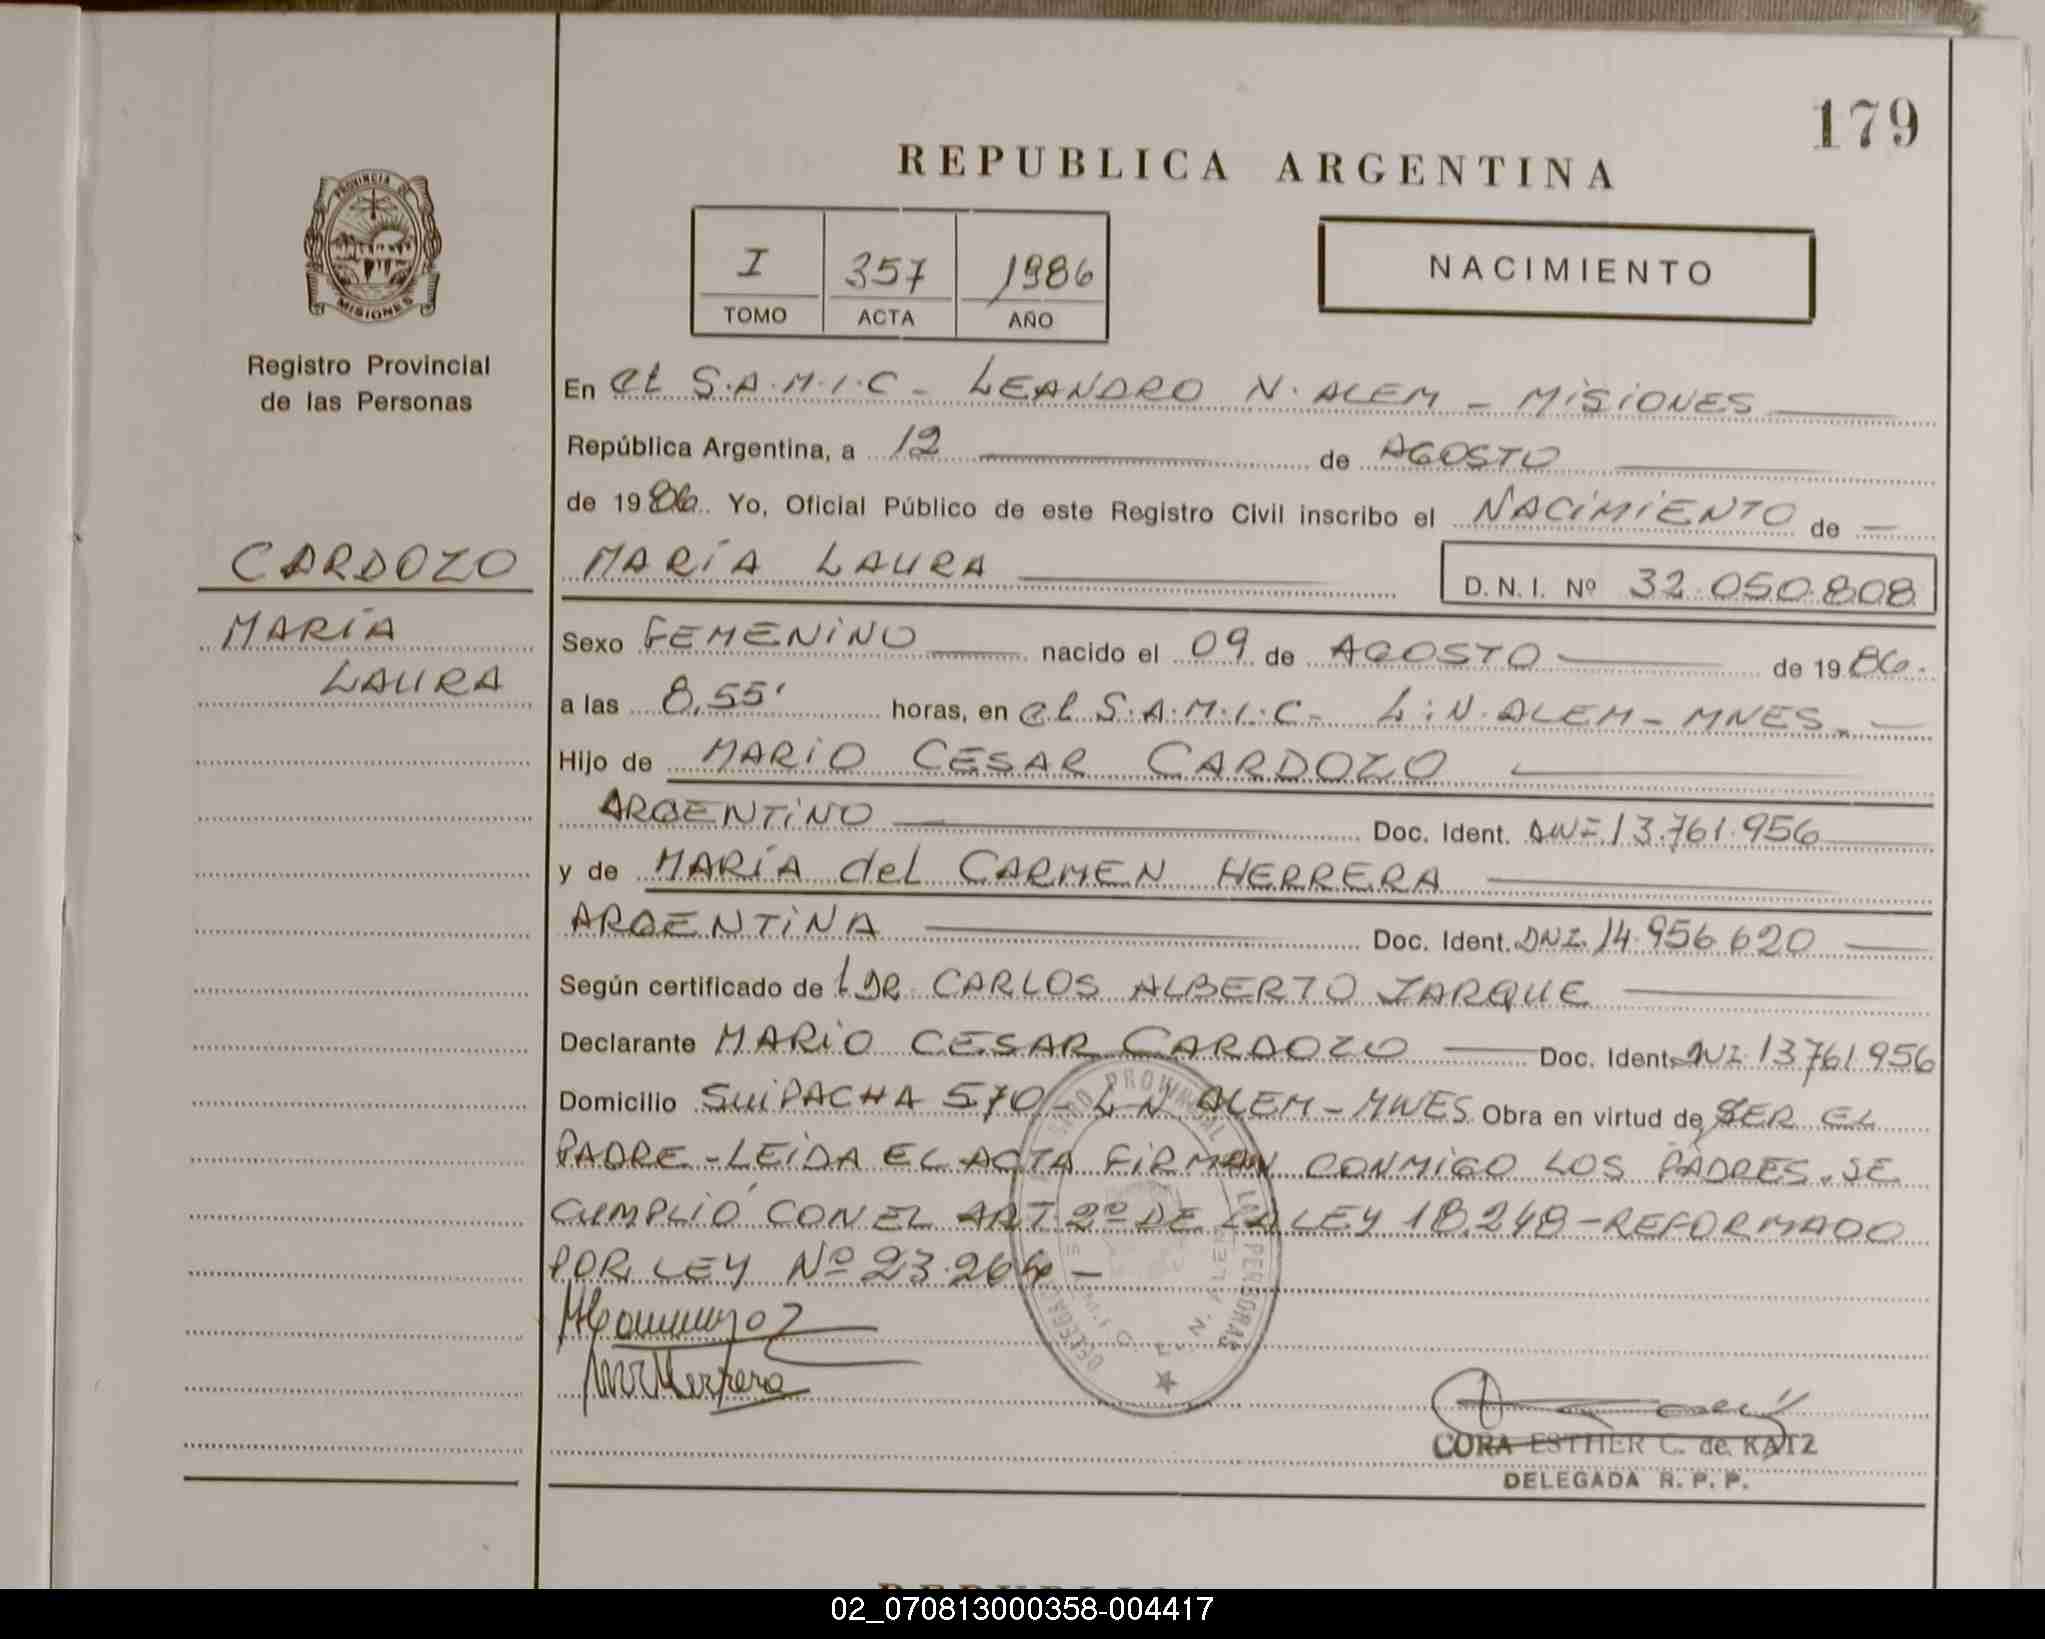 179
REPUBLICA ARGENTINA
PROVINCIA DE
MISIONES
I 357 1986
TOMO ACTA AÑO
NACIMIENTO
Registro Provincial
de las Personas
CARDOZO
MARÍA
LAURA
En el S.A.M.I.C - LEANDRO N. ALEM - MISIONES
República Argentina, a 12 de AGOSTO
de 1986. Yo, Oficial Público de este Registro Civil inscribo el NACIMIENTO de
MARÍA LAURA D. N. I. Nº 32.050.808
Sexo FEMENINO nacido el 09 de AGOSTO de 1986.
a las 8,55' horas, en el S.A.M.I.C - L.N. ALEM - MNES.
Hijo de MARIO CESAR CARDOZO
ARGENTINO Doc. Ident. DNI 13.761.956
y de MARÍA del CARMEN HERRERA
ARGENTINA Doc. Ident. DNI. 14.956.620
Según certificado de l DR. CARLOS ALBERTO ZARQUE
Declarante MARIO CESAR CARDOZO Doc. Ident. DNI. 13.761.956
Domicilio SUIPACHA 570 - L.N ALEM - MNES. Obra en virtud de SER EL
PADRE - LEIDA EL ACTA FIRMAN CONMIGO LOS PADRES. SE
CUMPLIÓ CON EL ART. 2º DE LA LEY 18.248 - REFORMADO
POR LEY Nº 23.264 -
CORA ESTHER C. de KATZ
DELEGADA R. P. P.
02_070813000358-004417